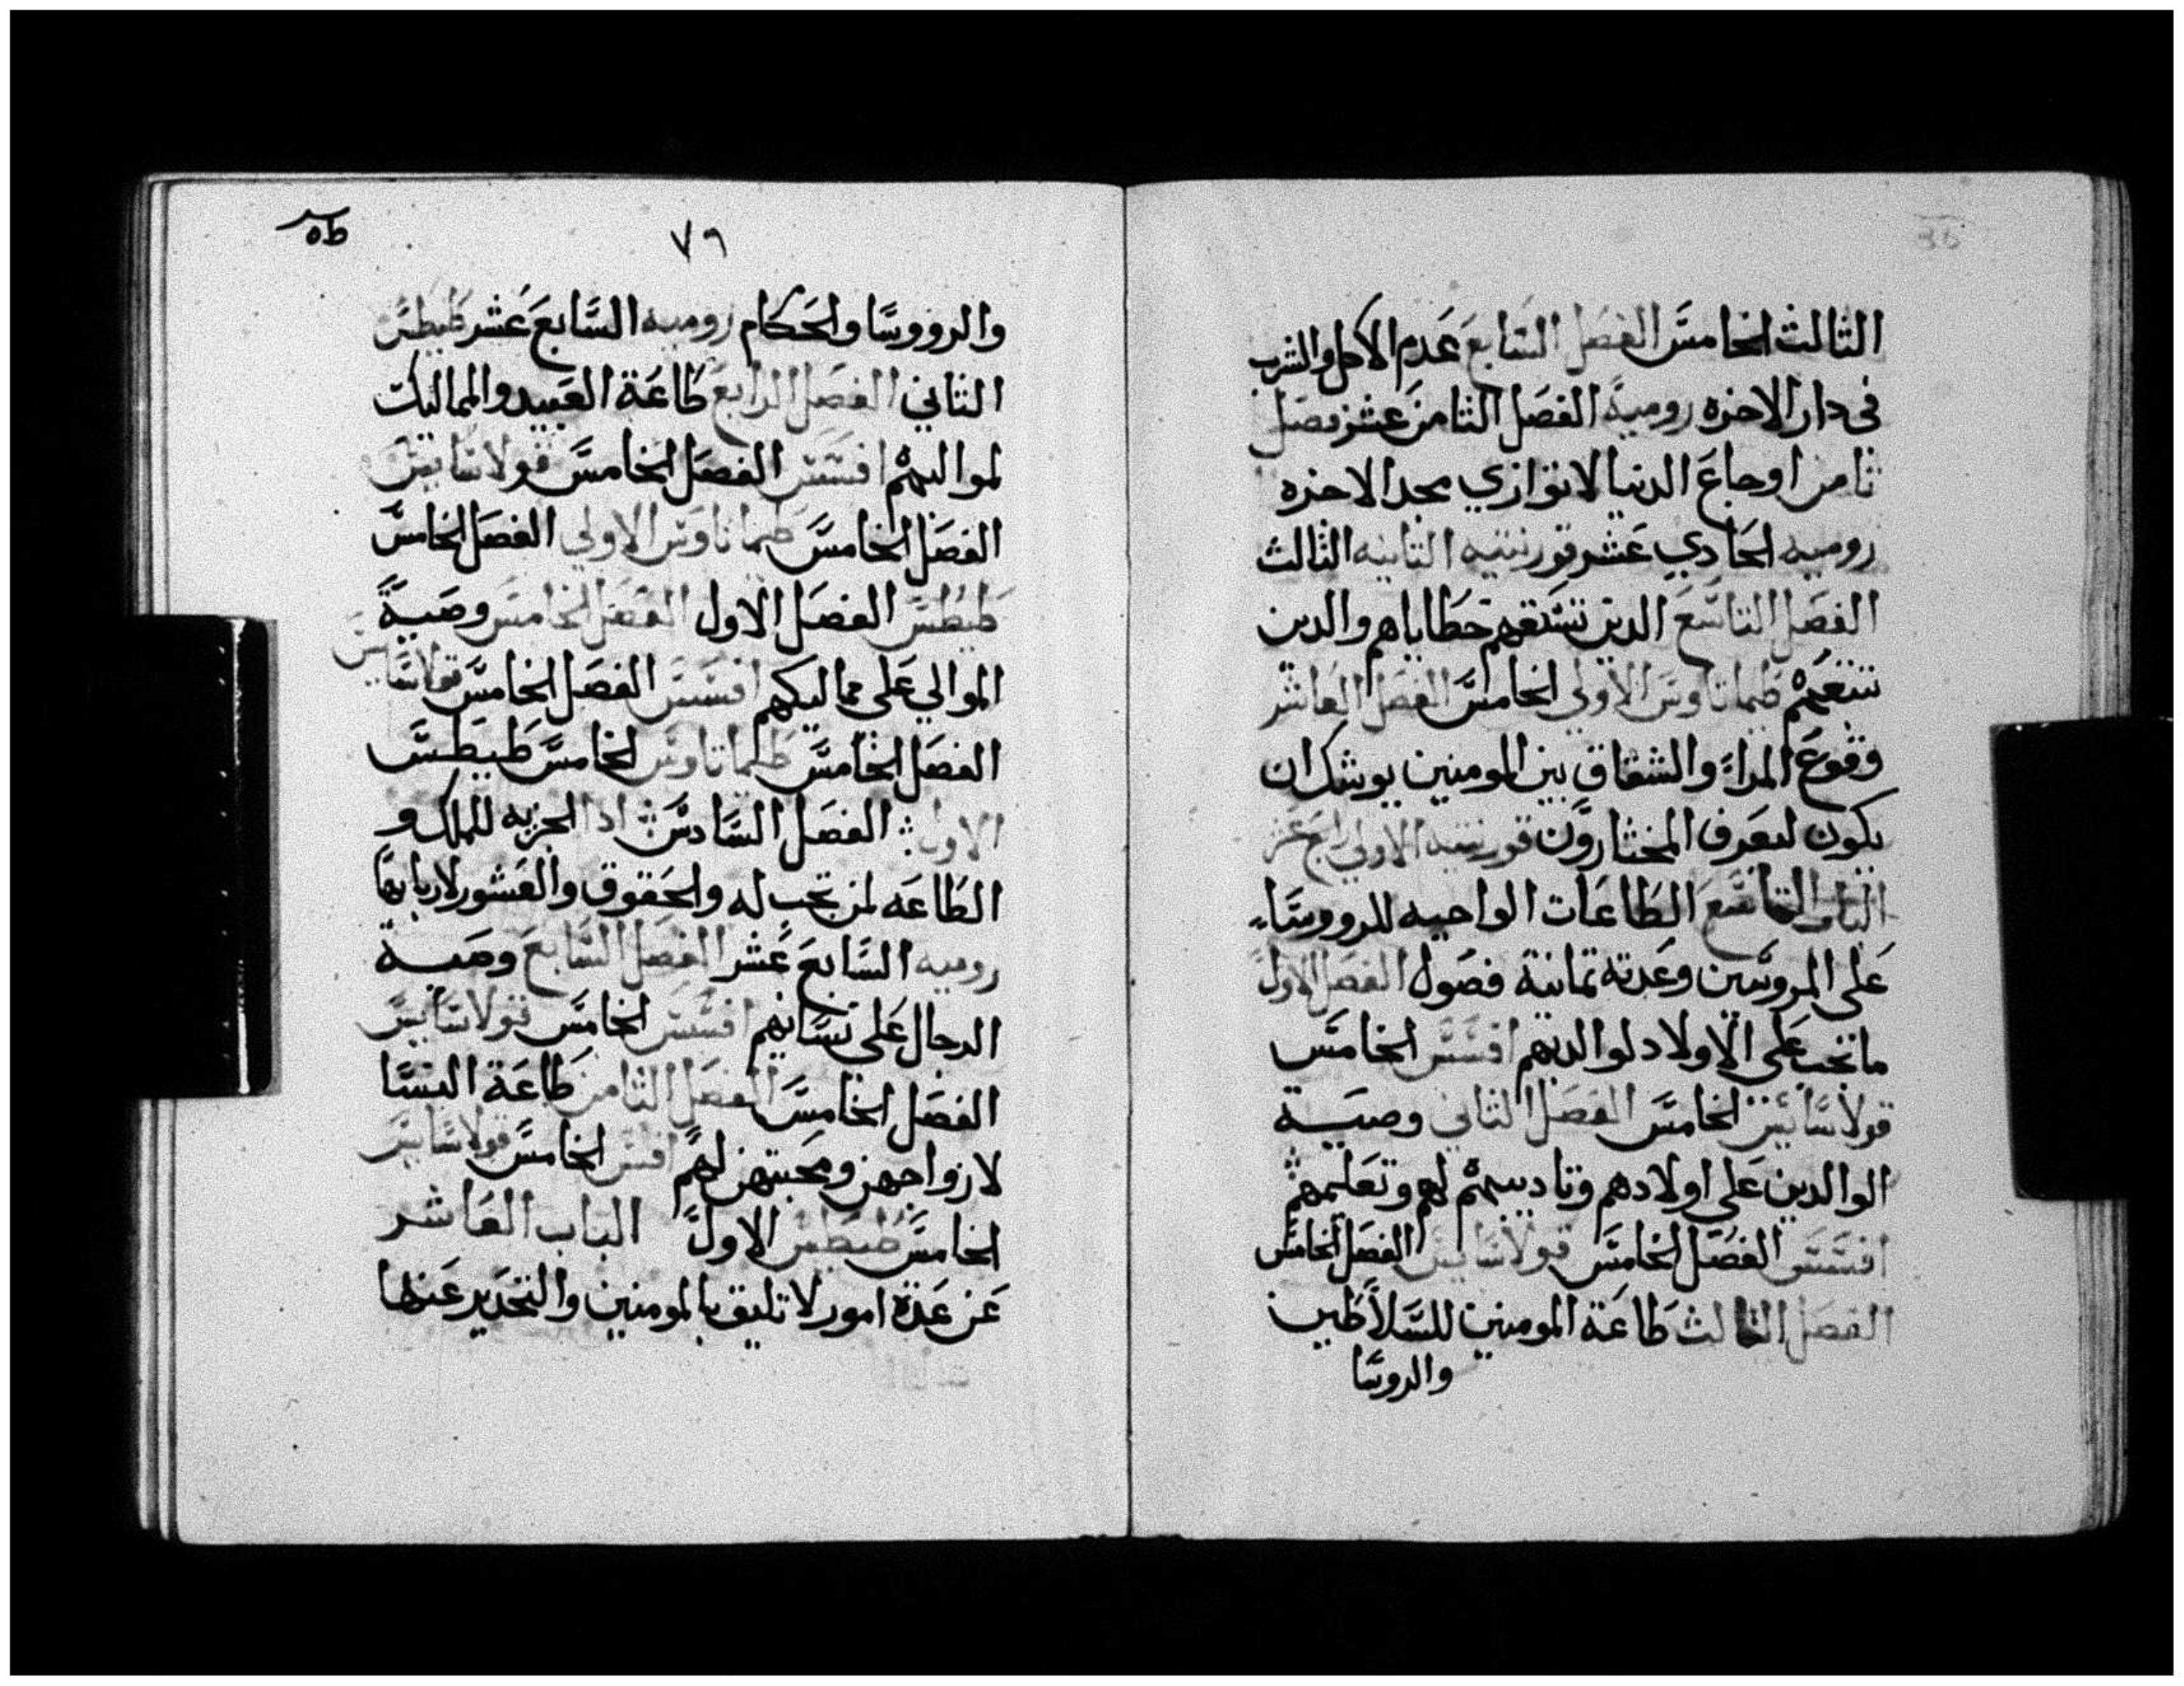 الثالث الخامس الفصل السابع عدم الاكل والشرب
في دار الاخره رومية الفصل الثامن عشر فصل
ثامن اوجاع الدنيا لا توازي مجد الاخره
روميه الحادي عشر قورنتيه الثانيه الثالث
الفصل التاسع الدين تسبقهم خطاياهم والدين
تتبعهم طيماتاوس الاولي الخامس الفصل العاشر
وقوع المراء والشقاق بين المومنين يوشك ان
يكون ليعرف المختارون قورنتيه الاولي رابع عشر
الباب التاسع الطاعات الواجبه للرووساء
على المروسين وعدته تمانية فصول الفصل الاول
ما تجب على الاولاد لوالديهم افسس الخامس
قولاسايس الخامس الفصل الثاني وصية
الوالدين على اولادهم وتاديبهم لهم وتعليمهم
افسس الفصل الخامس قولاسايس الفصل الخامس
الفصل الثالث طاعة المومنين للسلاطين
والروسا
٧٩
والرووسا والحكام روميه السابع عشر طيطس
الثاني الفصل الرابع طاعة العبيد والمماليك
لمواليهم افسس الفصل الخامس قولاسايس
الفصل الخامس طيماتاوس الاولي الفصل الخامس
طيطس الفصل الاول الفصل الخامس وصية
الموالي على مماليكهم افسس الفصل الخامس قولاسايس
الفصل الخامس طيماتاوس الخامس طيطس
الاول الفصل السادس ادا الجزيه للملك و
الطاعه لمن تجب له والحقوق والعشور لاربابها
روميه السابع عشر الفصل السابع وصية
الرجال على نسايهم افسس الخامس قولاسايس
الفصل الخامس الفصل الثامن طاعة النسا
لازواجهن ومحبتهن لهم افسس الخامس قولاسايس
الخامس طيطس الاول الباب العاشر
عن عدة امور لا تليق بالمومنين والتحدير عنها